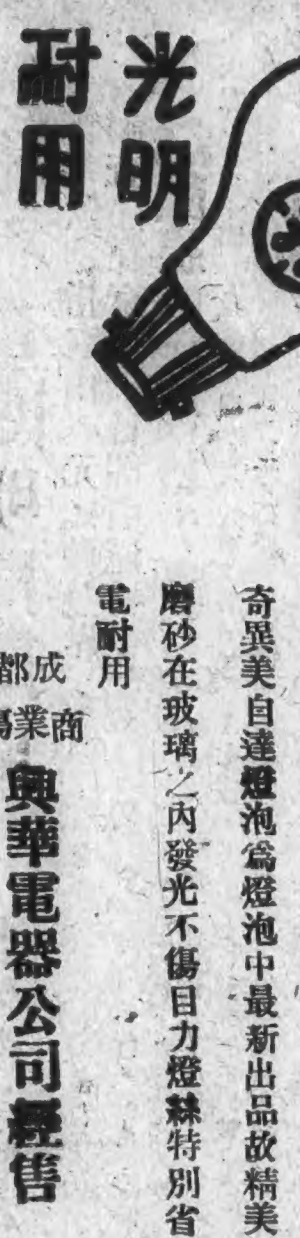 光明
耐用
奇異美自達燈泡爲燈泡中最新出品故精美
磨砂在玻璃之內發光不傷目力燈絲特別省
電耐用
成都
商業場
興華電器公司經售